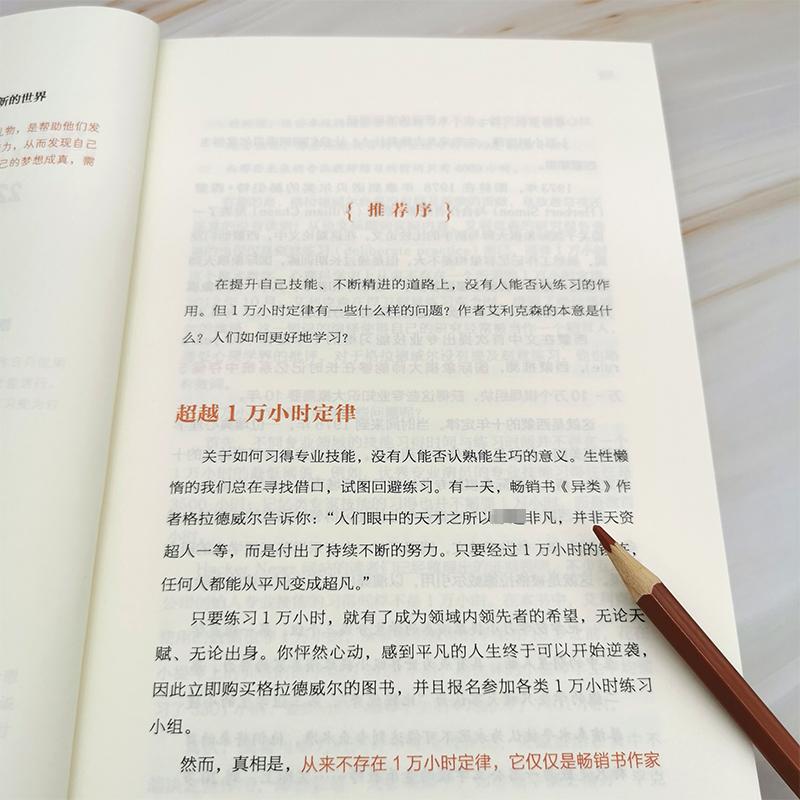 新的世界
礼物，是帮助他们发
力，从而发现自己
己的梦想成真，需
{ 推荐序 }
在提升自己技能、不断精进的道路上，没有人能否认练习的作
用。但 1 万小时定律有一些什么样的问题？作者艾利克森的本意是什
么？人们如何更好地学习？
超越 1 万小时定律
关于如何习得专业技能，没有人能否认熟能生巧的意义。生性懒
惰的我们总在寻找借口，试图回避练习。有一天，畅销书《异类》作
者格拉德威尔告诉你：“人们眼中的天才之所以非凡，并非天资
超人一等，而是付出了持续不断的努力。只要经过 1 万小时的
任何人都能从平凡变成超凡。”
只要练习 1 万小时，就有了成为领域内领先者的希望，无论天
赋、无论出身。你怦然心动，感到平凡的人生终于可以开始逆袭，
因此立即购买格拉德威尔的图书，并且报名参加各类 1 万小时练习
小组。
然而，真相是，从来不存在 1 万小时定律，它仅仅是畅销书作家